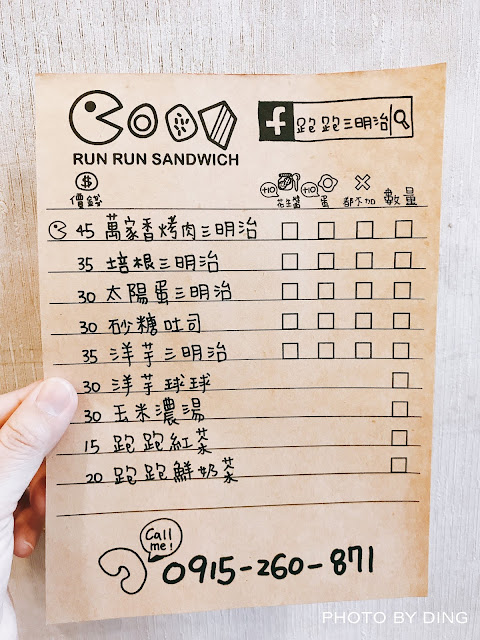 f 跑跑三明治
RUN RUN SANDWICH
$
價錢 +10 花生醬 +10 蛋 都不加 數量
45 萬家香烤肉三明治
35 培根三明治
30 太陽蛋三明治
30 砂糖吐司
35 洋芋三明治
30 洋芋球球
30 玉米濃湯
15 跑跑紅茶
20 跑跑鮮奶茶
Call me!
0915-260-871
PHOTO BY DING